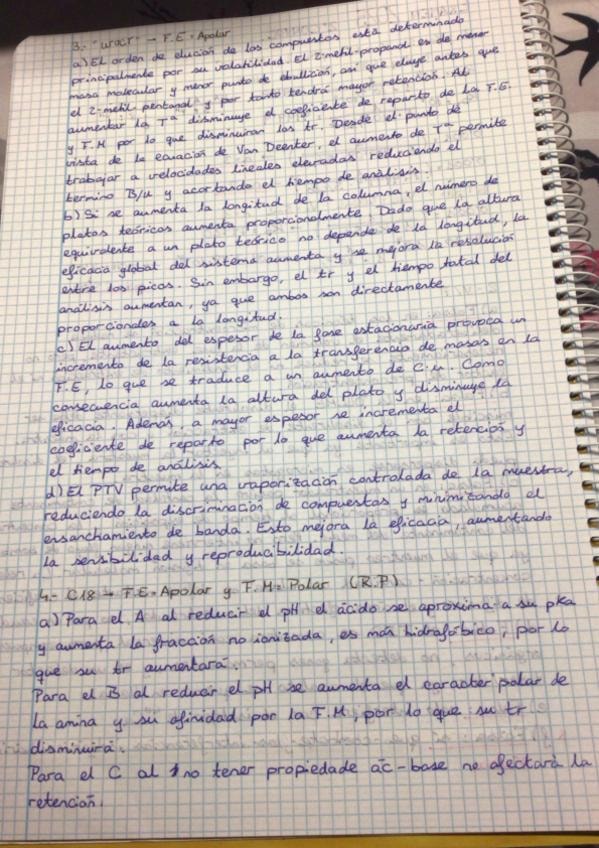 3.- "WCOT" - F.E = Apolar
a) El orden de elución de los compuestos está determinado
principalmente por su volatilidad. El 2-metil-propanol es de menor
masa molecular y menor punto de ebullición, así que eluye antes que
el 2-metil pentanol y por tanto tendrá mayor retención. Al
aumentar la Tª disminuye el coeficiente de reparto de la F.E.
y F.M por lo que disminuiran los tr. Desde el punto de
vista de la ecuación de Van Deenter, el aumento de Tª permite
trabajar a velocidades lineales elevadas reduciendo el
termino B/u y acortando el tiempo de análisis.
b) Si se aumenta la longitud de la columna, el número de
platos teóricos aumenta proporcionalmente. Dado que la altura
equivalente a un plato teórico no depende de la longitud, la
eficacia global del sistema aumenta y se mejora la resolución
entre los picos. Sin embargo, el tr y el tiempo total del
análisis aumentan, ya que ambos son directamente
proporcionales a la longitud.
c) El aumento del espesor de la fase estacionaria provoca un
incremento de la resistencia a la transferencia de masas en la
F.E, lo que se traduce a un aumento de C·u. Como
consecuencia aumenta la altura del plato y disminuye la
eficacia. Además, a mayor espesor se incrementa el
coeficiente de reparto por lo que aumenta la retención y
el tiempo de análisis
d) El PTV permite una vaporización controlada de la muestra,
reduciendo la discriminación de compuestos y minimizando el
ensanchamiento de banda. Esto mejora la eficacia, aumentando
la sensibilidad y reproducibilidad.
4.- C18 - F.E = Apolar y F.M = Polar (R.P)
a) Para el A al reducir el pH el ácido se aproxima a su pKa
y aumenta la fracción no ionizada, es más hidrofóbico, por lo
que su tr aumentará.
Para el B al reducir el pH se aumenta el caracter polar de
la amina y su afinidad por la F.M, por lo que su tr
disminuirá.
Para el C al no tener propiedade ác-base no afectará la
retención.